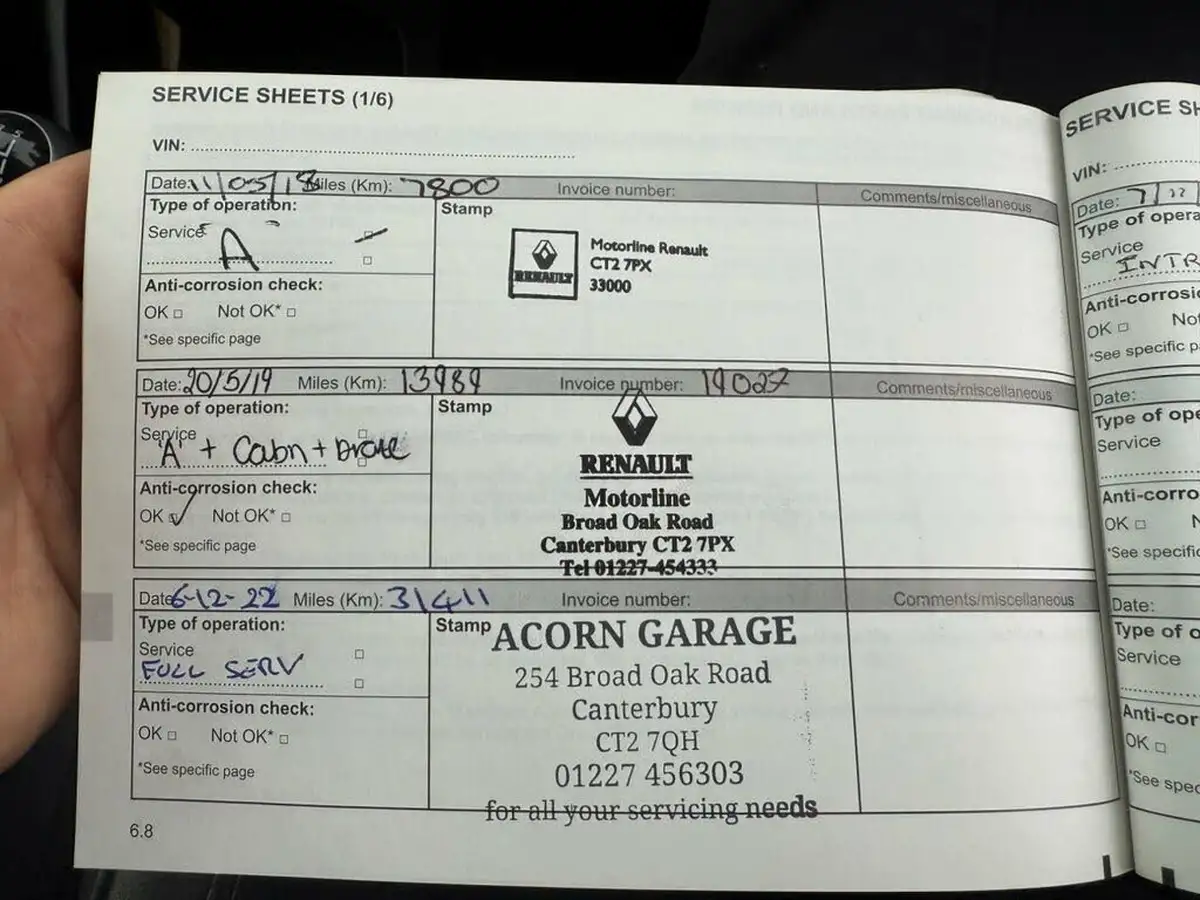 SERVICE SHEETS (1/6)
VIN:
Date: 11/05/18 Miles (Km): 7800 Invoice number: Comments/miscellaneous
Type of operation:
Stamp
Service
A
Anti-corrosion check:
OK Not OK*
*See specific page
RENAULT
Motorline Renault
CT2 7PX
33000
Date: 20/5/19 Miles (Km): 13989 Invoice number: 19027 Comments/miscellaneous
Type of operation:
Stamp
Service
'A' + Cabn +
Anti-corrosion check:
OK ✓ Not OK*
*See specific page
RENAULT
Motorline
Broad Oak Road
Canterbury CT2 7PX
Tel 01227-454333
Date 6-12-22 Miles (Km): 31411 Invoice number: Comments/miscellaneous
Type of operation:
Stamp
Service
FULL SERV
Anti-corrosion check:
OK Not OK*
*See specific page
ACORN GARAGE
254 Broad Oak Road
Canterbury
CT2 7QH
01227 456303
for all your servicing needs
6.8
SERVICE SH
VIN:
Date: 7/
Type of opera
Service
INTR
Anti-corrosio
OK Not
*See specific p
Date:
Type of ope
Service
Anti-corro
OK N
*See specific
Date:
Type of o
Service
Anti-cor
OK
*See spec